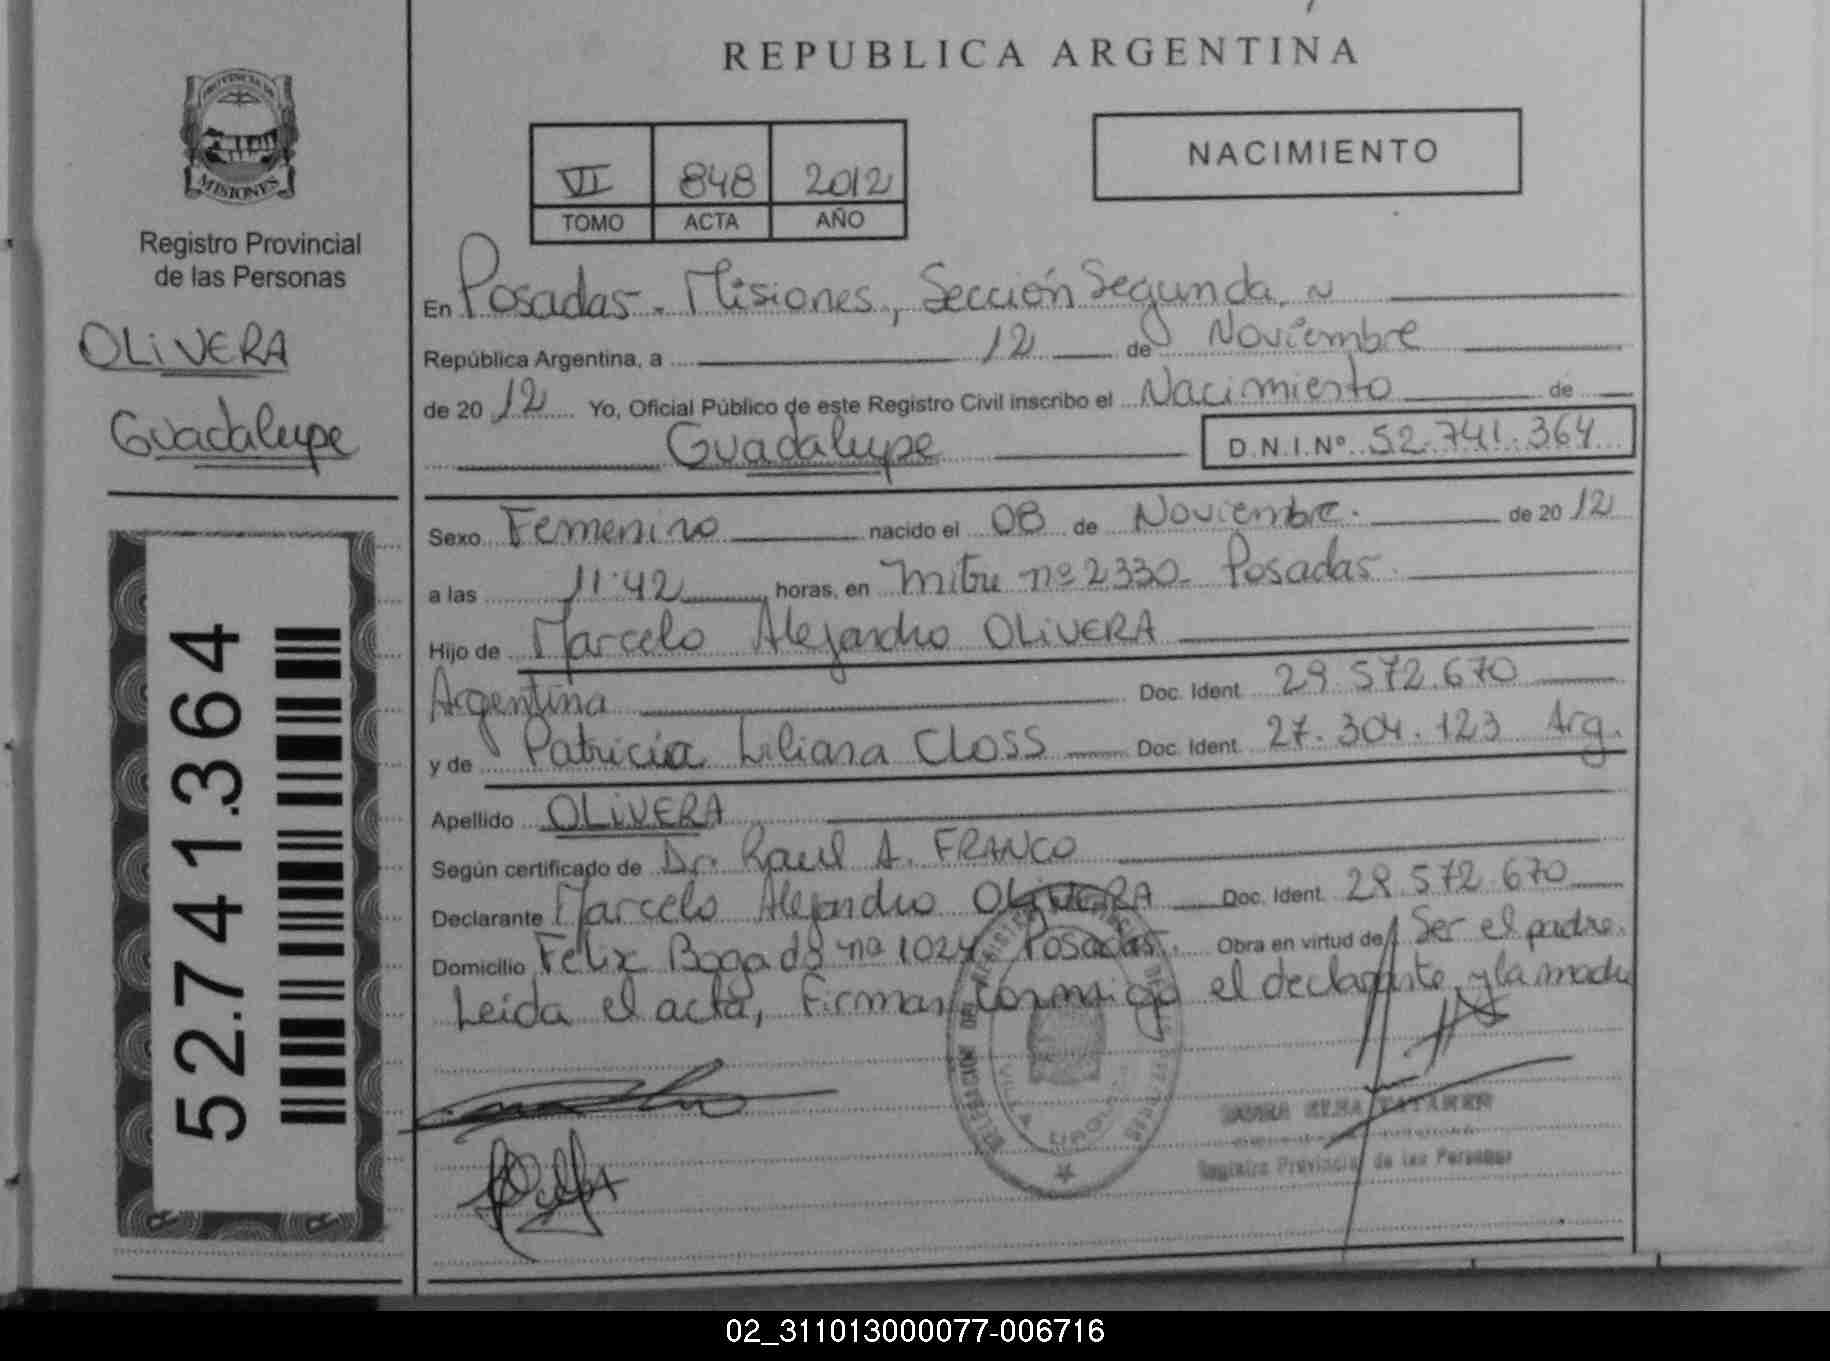 REPUBLICA ARGENTINA
PROVINCIA DE
MISIONES
Registro Provincial
de las Personas
OLIVERA
Guadalupe
52.741.364
VI 848 2012
TOMO ACTA AÑO
NACIMIENTO
En Posadas - Misiones, Sección Segunda, ~
República Argentina, a 12 de Noviembre
de 2012 Yo, Oficial Público de este Registro Civil inscribo el Nacimiento de
Guadalupe D.N.I.Nº 52.741.364
Sexo Femenino nacido el 08 de Noviembre. de 2012
a las 11:42 horas, en Mitre nº 2330- Posadas.
Hijo de Marcelo Alejandro OLIVERA
Argentina Doc. Ident. 29.572.670
y de Patricia Liliana Closs Doc. Ident. 27.304.123 Arg.
Apellido OLIVERA
Según certificado de Dr. Raul A. FRANCO
Declarante Marcelo Alejandro OLIVERA Doc. Ident. 29.572.670
Domicilio Felix Bogado nº 1024 Posadas. Obra en virtud de Ser el padre.
Leida el acta, firman conmigo el declarante y la madre
DELEGACION DEL REGISTRO
VILLA URQUIZA
Registro Provincial de las Personas
02_311013000077-006716